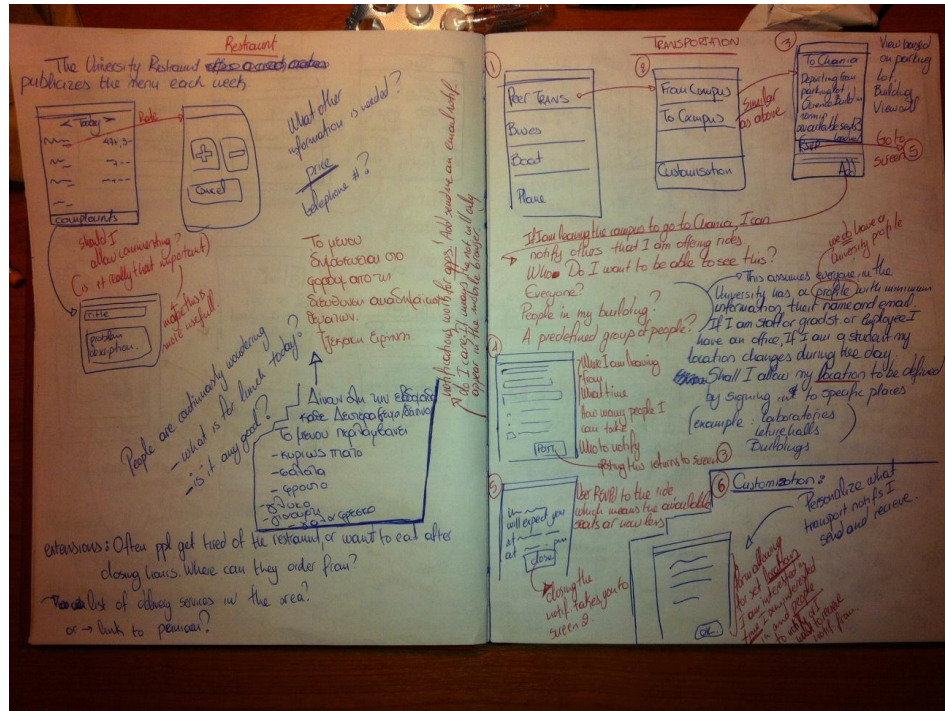 Restraunt
The University Restraunt
publicizes the menu each week
< Today >
Rate
complaints
+
-
Cancel
What other
information is needed?
price
telephone #?
should I
allow commenting?
(is it really that important)
Title
problem
description..
make this
more usefull
Το μενου
δημοσιευεται στο
απο την
διευθυνση
People are continuously wondering
- what is for lunch today?
- is it any good?
καθε Δευτερα
Το μενου περιλαμβανει
- κυριως πιατο
- σαλατα
- φρουτο
- γλυκο
- γιαουρτι
extensions: Often ppl get tired of the restraunt or want to eat after
closing hours. Where can they order from?
list of delivery services in the area?
or → link to
notifications work for apps! Add send me an email notif
do I care if I
appear in the mobile browser.
TRANSPORTATION
1
Peer TRANS
Buses
Boat
Plane
2
From Campus
To Campus
Customisation
Similar
as above
3
To Chania
Departing from
parking lot
Science Building
10 am
available seats 3
RSVP
Add
View based
on parking
Lot,
Building
View all
Go to
screen 5
If I am leaving the campus to go to Chania, I can
notify others that I am offering rides
Who Do I want to be able to see this?
Everyone?
People in my building?
A predefined group of people?
we do have a
University profile
This assumes everyone in the
University has a profile with minimum
information, their name and email.
If I am staff or grad st. or Employee I
have an office, If I am a student my
location changes during the day.
Shall I allow my location to be defined
by signing in to specific places
(example: laboratories
lecture halls
Buildings)
4
Where I am leaving
from
What time
How many people I
can take
Who to notify
posting this returns to screen 3
5
will expect you
at
at ... pm
close
User RSVPs to the ride
which means the available
seats are now less
closing the
notif takes you to
screen 2.
6
Customization:
Personalize what
transport notifs I
send and recieve.
OK
allowing
to set locations
I am interested in
time I am interested
in and people
to notify or
want to recieve
notif from.